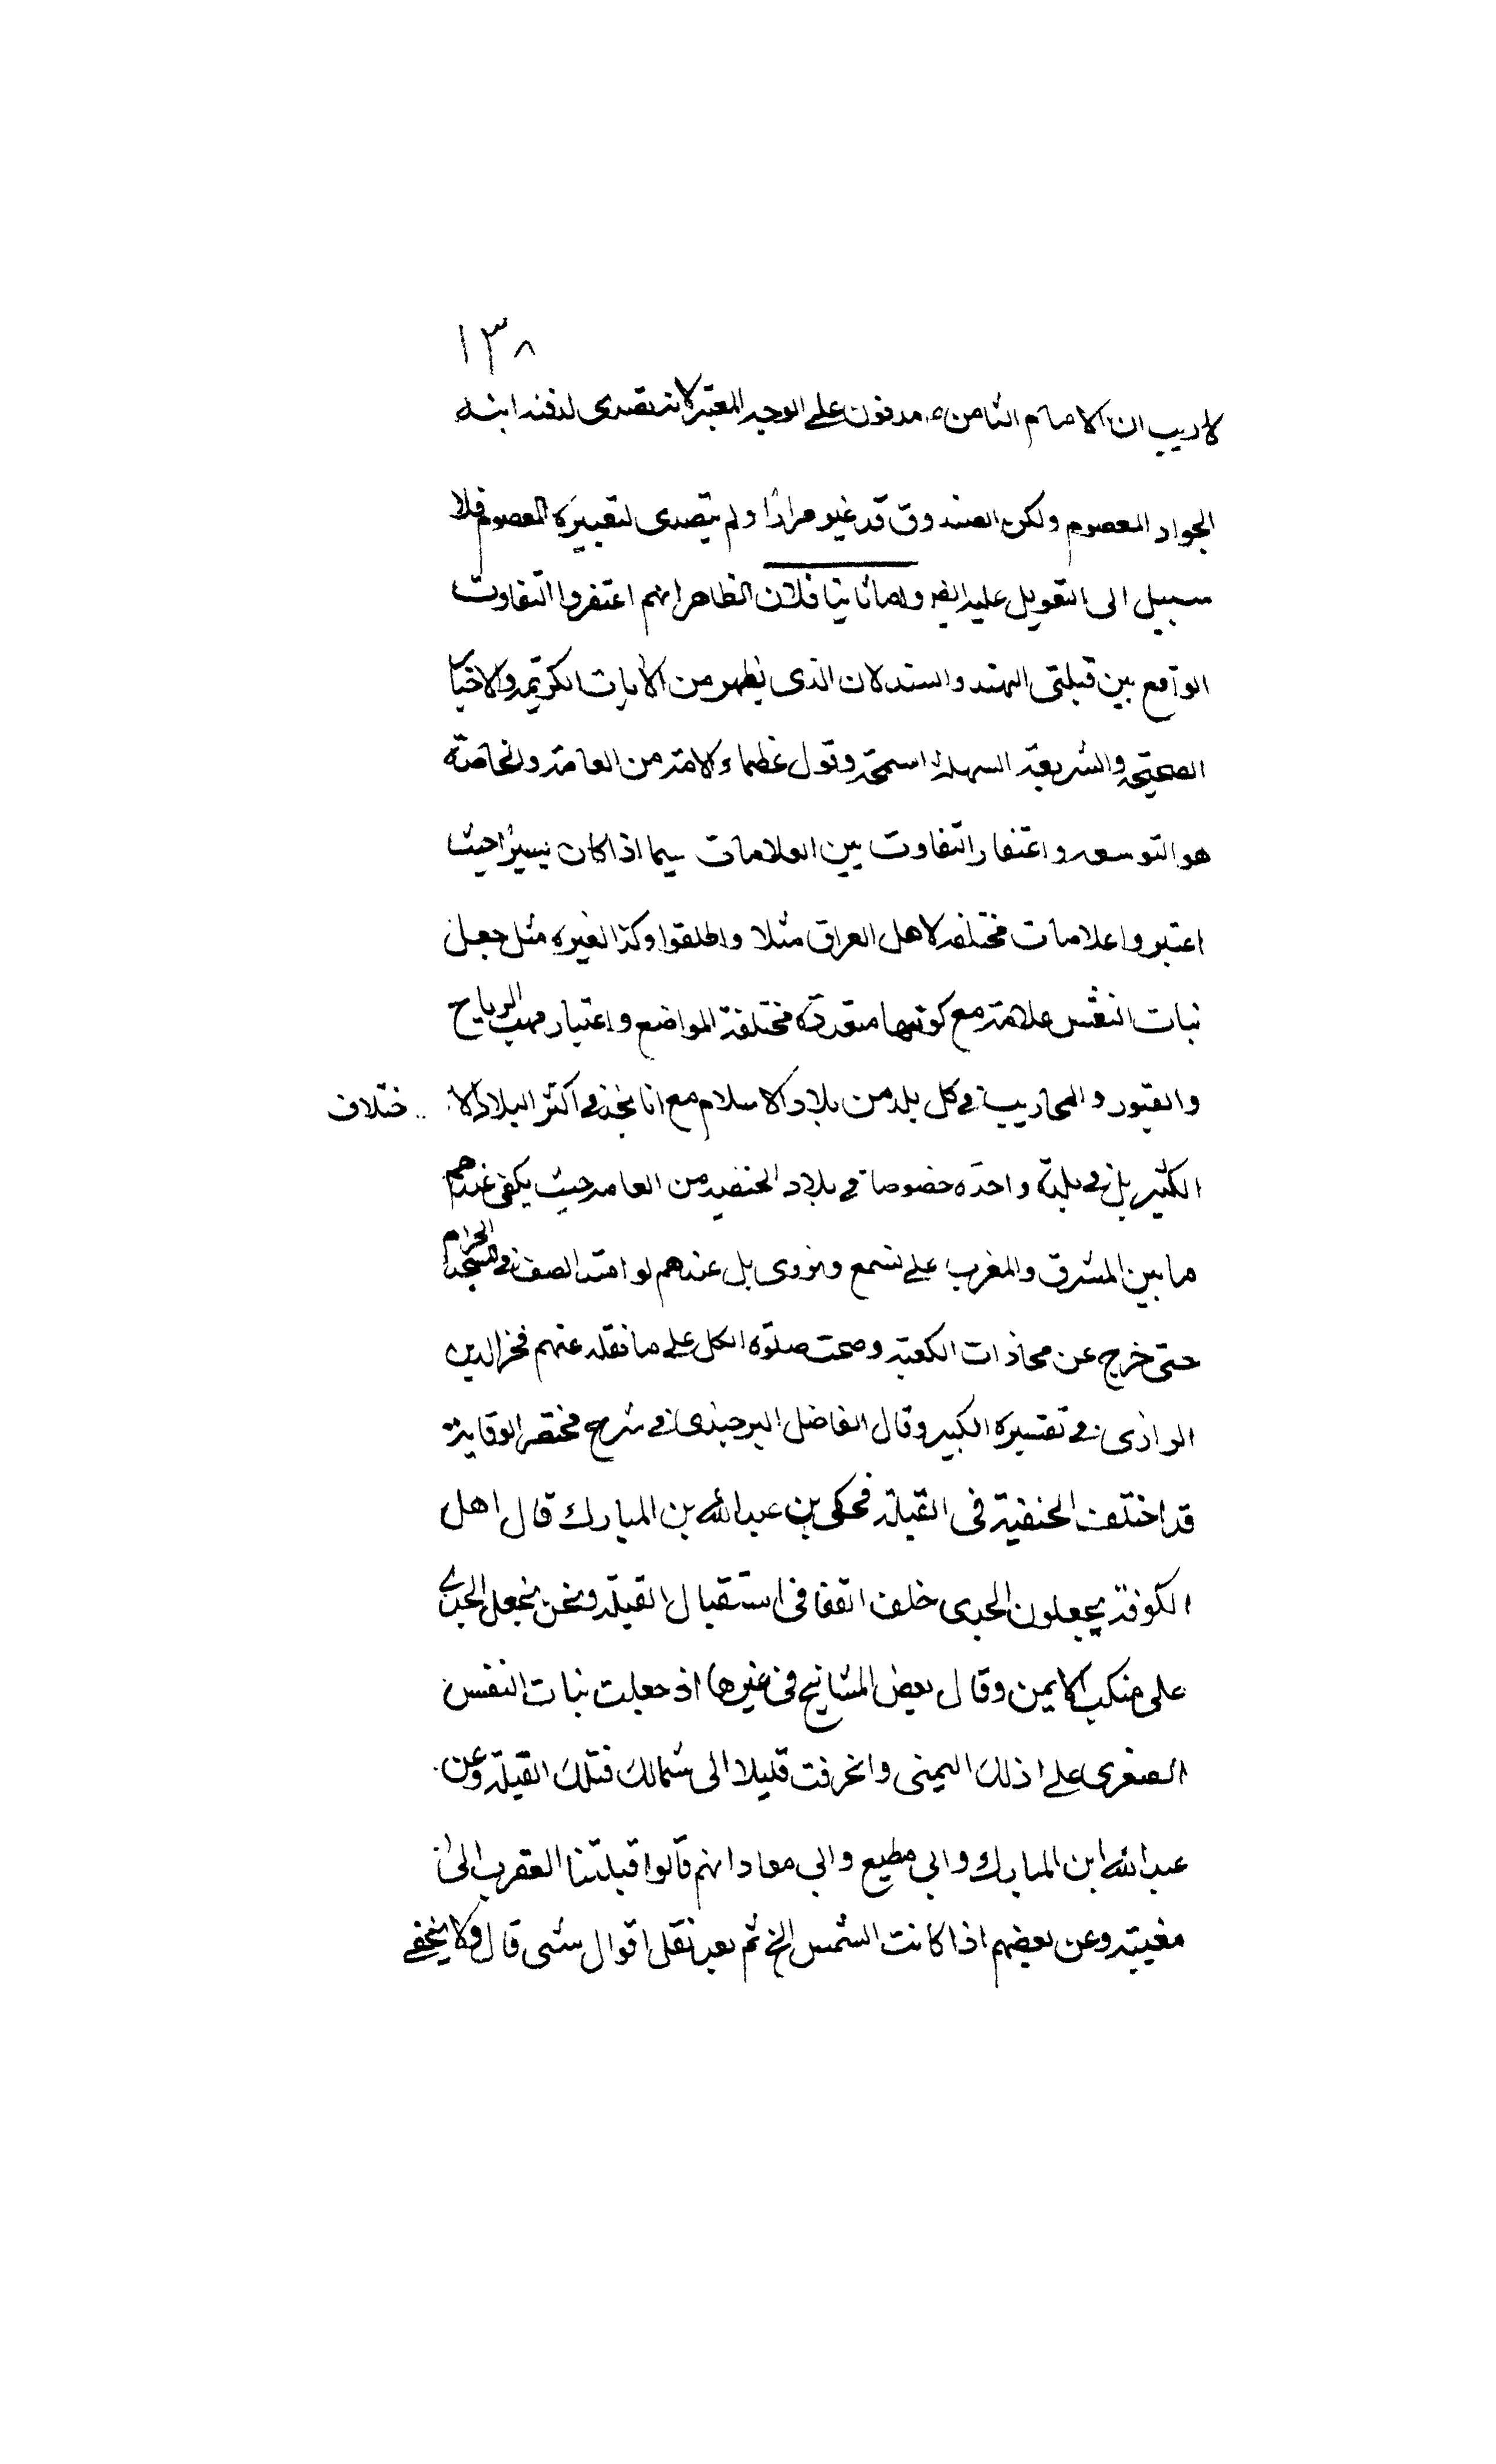 ١٣٨
لا ريب ان الامام الثامن ع مدفون على الوجه المعتبر لانه تصدى لدفنه ابنه
الجواد المعصوم ولكن الصندوق قد غير مرارا ولم يتصدى لتغييره المعصوم فلا
سبيل الى التعويل عليه ايضا واما ثانيا فلان الظاهر انهم اعتفروا التفاوت
الواقع بين قبلتى الهند والسند لان الذى يظهر من الايات الكريمة والاخبار
الصحيحة والشريعة السهلة اسمحة وقول عظماء الامة من العامة والخاصة
هو التوسعه واعتفار التفاوت بين العلامات سيما اذا كان يسيرا حيث
اعتبروا علامات مختلفه لاهل العراق مثلا واطلقوا وكذا لغيره مثل جعل
نبات النعش علامة مع كونها متعددة مختلفة المواضع واعتبار مهب الرياح
والقبور والمحاريب فى كل بلد من بلاد الاسلام مع انا نجد فى اكثر البلاد الا .. ختلاف
الكثير بل فى بلدة واحده خصوصا فى بلاد الحنفيه من العامه حيث يكفى عندهم
ما بين المشرق والمغرب على نسمع ونروى بل عندهم لو امتد الصف فى المسجد الحرام
حتى خرج عن محاذات الكعبة وصحت صلوة الكل على ما نقله عنهم فخر الدين
الرازى فى تفسيره الكبير وقال الفاضل البرجندى فى شرح مختصر الوقاية
قد اختلف الحنفية فى القبلة فحكى بن عبد الله بن المبارك قال اهل
الكوفة يجعلون الجدى خلف القفا فى استقبال القبلة ونحن نجعل الجدى
على منكب الايمن وقال بعض المشايخ فى غيرها اذ جعلت نبات النعش
الصغرى على اذنك اليمنى وانحرفت قليلا الى شمالك فتلك القبلة وعن
عبد الله ابن المبارك وابى مطيع وابى معاد انهم قالوا قبلتنا العقرب الى
مغيبه وعن بعضهم اذا كانت الشمس الخ ثم بعد نقل اقوال شتى قال ولا يخفى